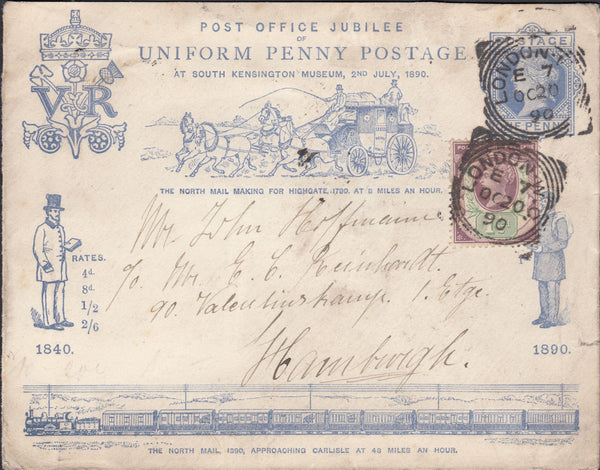 POST OFFICE JUBILEE
OF
UNIFORM PENNY POSTAGE
AT SOUTH KENSINGTON MUSEUM, 2ND JULY, 1890.
VR
POSTAGE
LONDON
E 7
OC20
90
THE NORTH MAIL MAKING FOR HIGHGATE, 1790. AT 8 MILES AN HOUR.
LONDON
E 7
OC20
90
Mr. John Hoffmann
c/o Mr. E. C. Reinhardt.
90. Valentinskamp. 1. Etge.
Hamburgh.
RATES.
4d.
8d.
1/2
2/6
1840.
1890.
THE NORTH MAIL, 1890, APPROACHING CARLISLE AT 48 MILES AN HOUR.